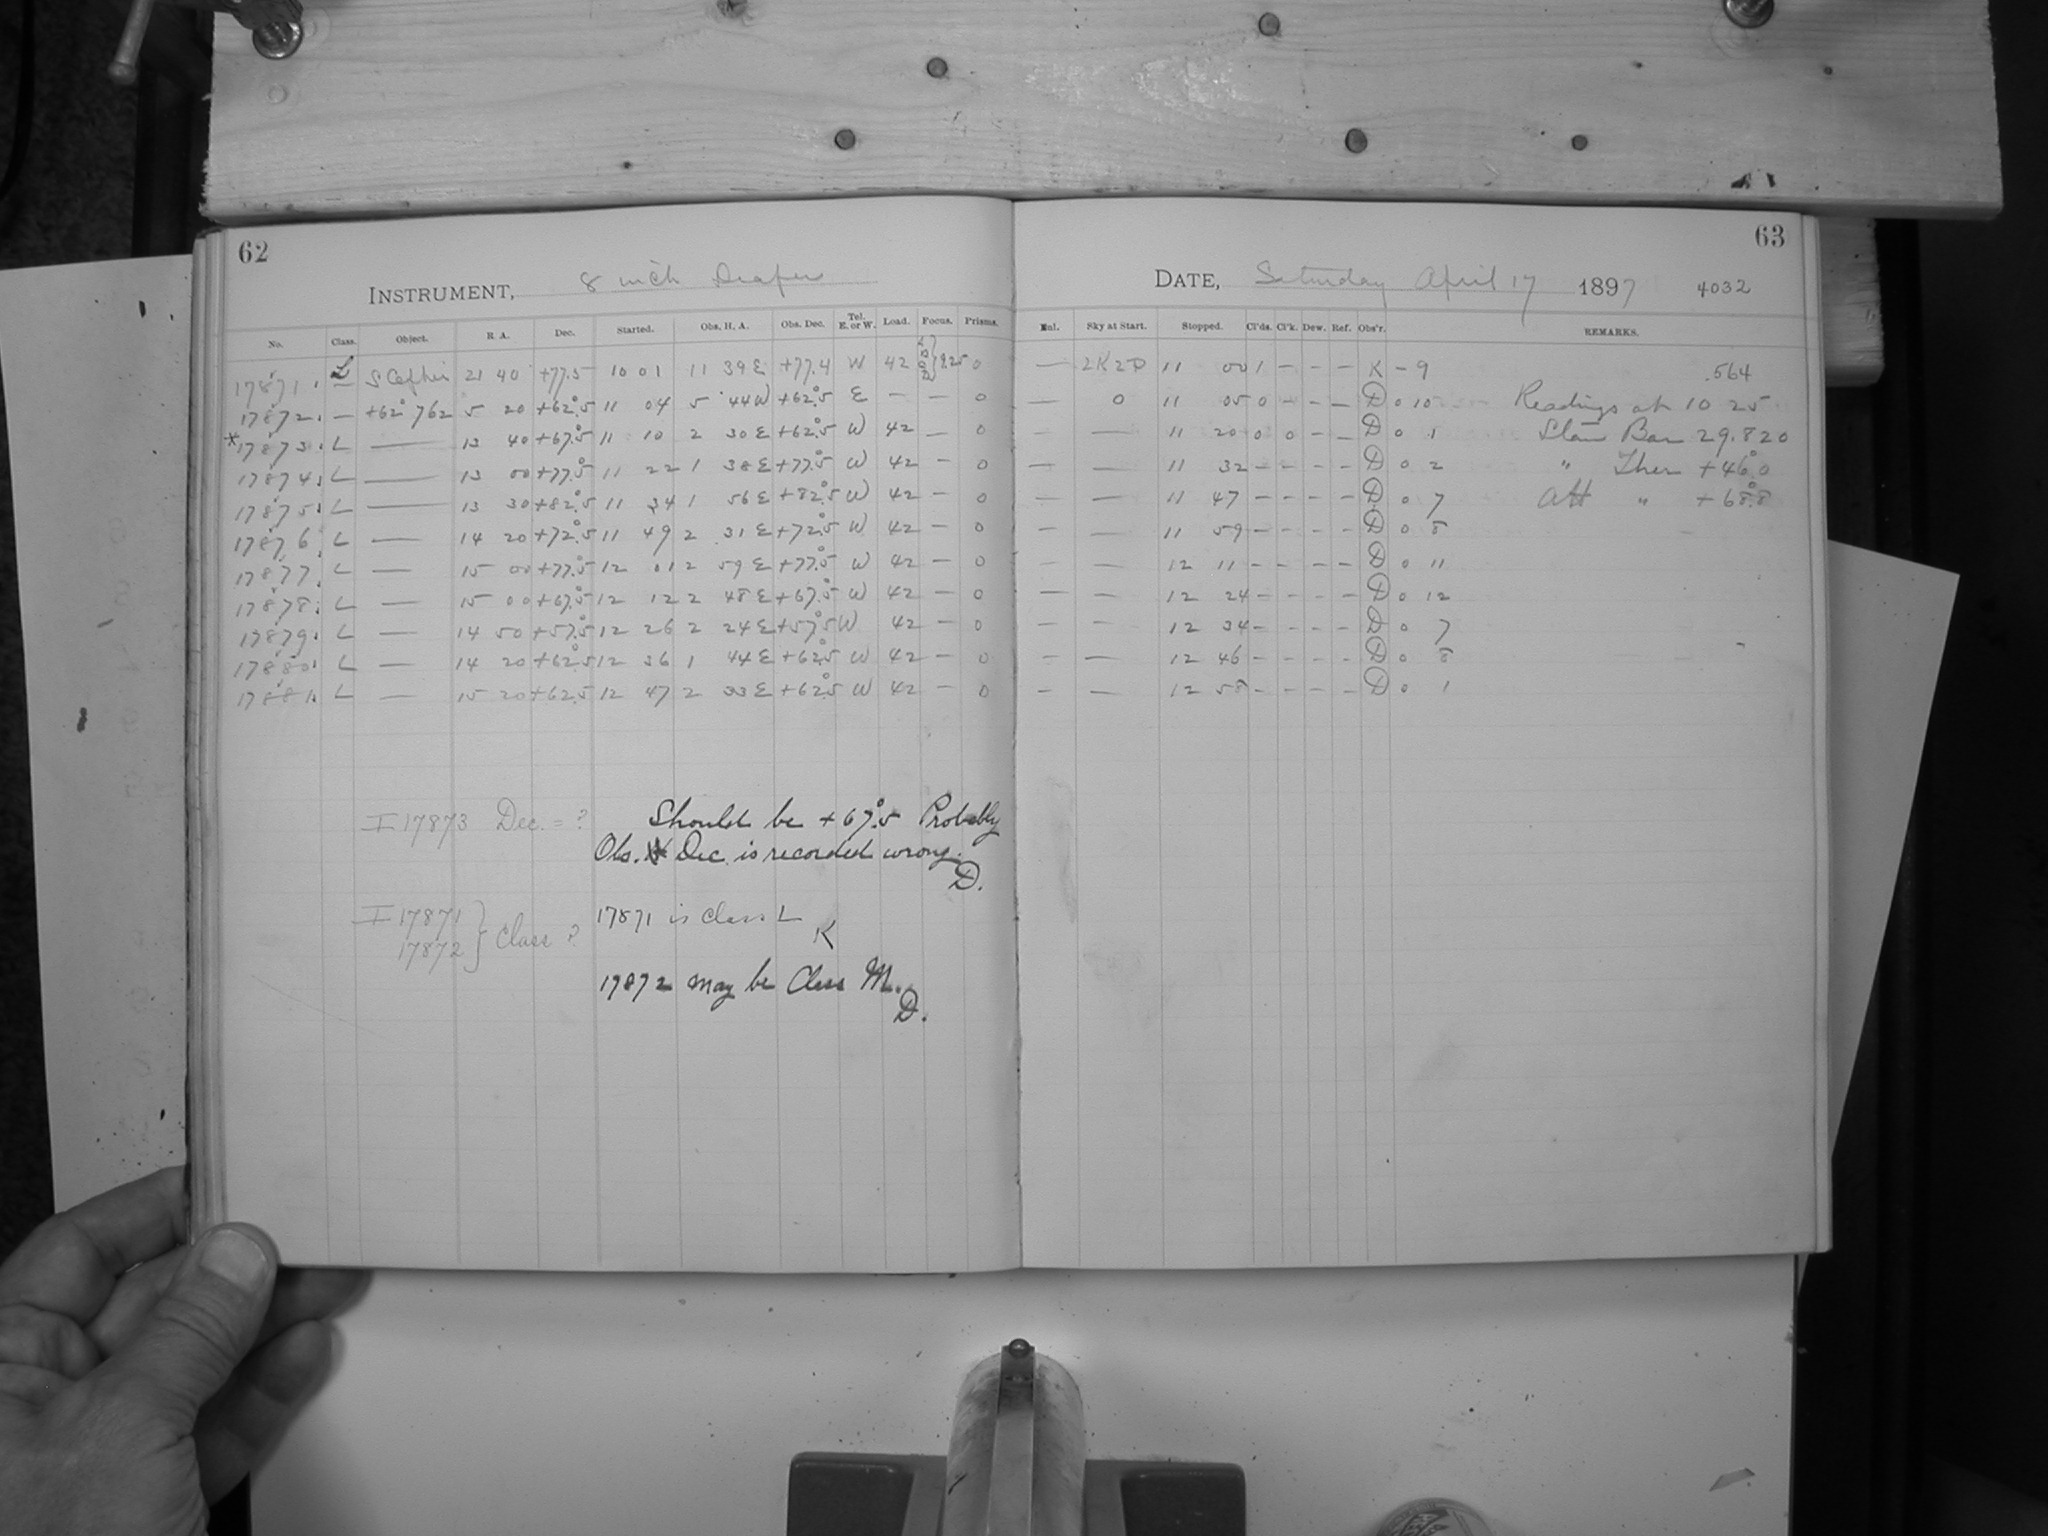 62
INSTRUMENT, 8 inch Draper
No. Class. Object. R. A. Dec. Started. Obs. H. A. Obs. Dec. Tel. E. or W. Load. Focus. Prisms.
17871. L S Cephei 21 40 +77.5 10 01 11 39 E +77.4 W 42 9.25 0
17872. — +62° 762 5 20 +62°.5 11 04 5 44 W +62°.5 E — — 0
*17873. L — 13 40 +67°.5 11 10 2 30 E +62°.5 W 42 — 0
17874. L — 13 00 +77°.5 11 22 1 38 E +77°.5 W 42 — 0
17875. L — 13 30 +82°.5 11 34 1 56 E +82°.5 W 42 — 0
17876. L — 14 20 +72°.5 11 49 2 31 E +72°.5 W 42 — 0
17877. L — 15 00 +77°.5 12 01 2 59 E +77°.5 W 42 — 0
17878. L — 15 00 +67°.5 12 12 2 48 E +67°.5 W 42 — 0
17879. L — 14 50 +57°.5 12 26 2 24 E +57°.5 W 42 — 0
17880. L — 14 20 +62°.5 12 36 1 44 E +62°.5 W 42 — 0
17881. L — 15 20 +62.5 12 47 2 33 E +62°.5 W 42 — 0
I 17873 Dec. = ? Should be +67°.5 Probably
Obs. Dec. is recorded wrong.
D.
I 17871
17872 } Class ? 17871 is class L
K
17872 may be Class M.
D.
63
DATE, Saturday April 17 1897 4032
Enl. Sky at Start. Stopped. Cl'ds. Cl'k. Dew. Ref. Obs'r. REMARKS.
— 2K2D 11 00 1 — — — K – 9 .564
— 0 11 05 0 — — — D 0 10 Readings at 10 25
— — 11 20 0 0 — — D 0 1 Stan Bar 29.820
— — 11 32 — — — — D 0 2 " Ther +46°.0
— — 11 47 — — — — D 0 7 Att " +68°.8
— — 11 59 — — — — D 0 8
— — 12 11 — — — — D 0 11
— — 12 24 — — — — D 0 12
— — 12 34 — — — — D 0 7
— — 12 46 — — — — D 0 8
— — 12 58 — — — — D 0 1